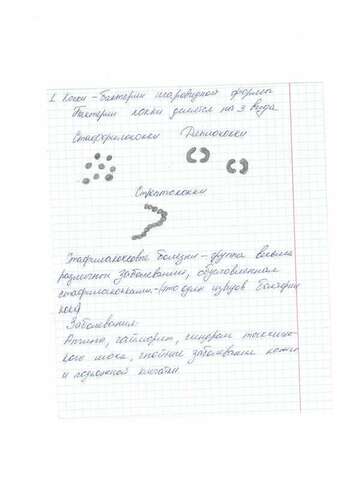 1. Кокки – бактерии шаровидной формы
Бактерии кокки делятся на 3 вида
Стафилококки Диплококки
Стрептококки
Стафилококковые болезни – группа весьма
различной заболевании, обусловленная
стафилококками – (это один из видов бактерий
кокк)
Заболевания:
Ангина, гайморит, синдром токсичес-
кого шока, гнойные заболевания кожи
и подкожной клетчатки